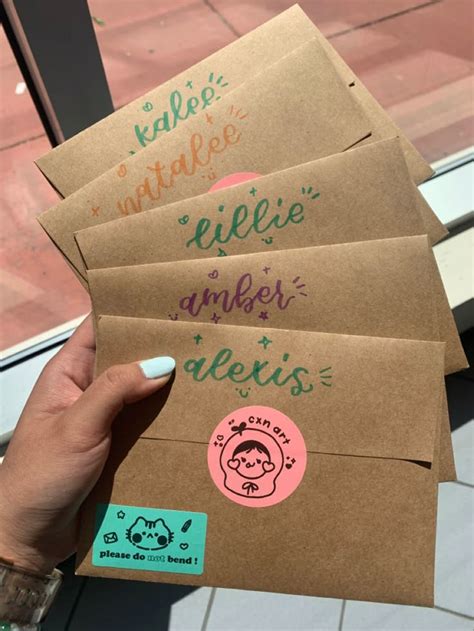 kalee
natalee
lillie
amber
alexis
cxn art
please do not bend !